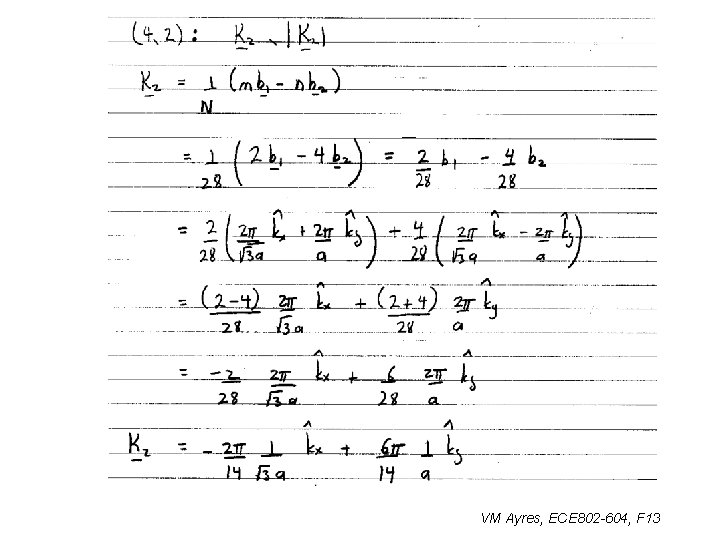 (4,2): K₂, |K₂|
K₂ = 1/N (mb₁ - nb₂)
= 1/28 (2b₁ - 4b₂) = 2/28 b₁ - 4/28 b₂
= 2/28 (2π/√3a k̂x + 2π/a k̂y) + 4/28 (2π/√3a k̂x - 2π/a k̂y)
= (2-4)/28 2π/√3a k̂x + (2+4)/28 2π/a k̂y
= -2/28 2π/√3a k̂x + 6/28 2π/a k̂y
K₂ = - 2π/14 1/√3a k̂x + 6π/14 1/a k̂y
VM Ayres, ECE802-604, F13